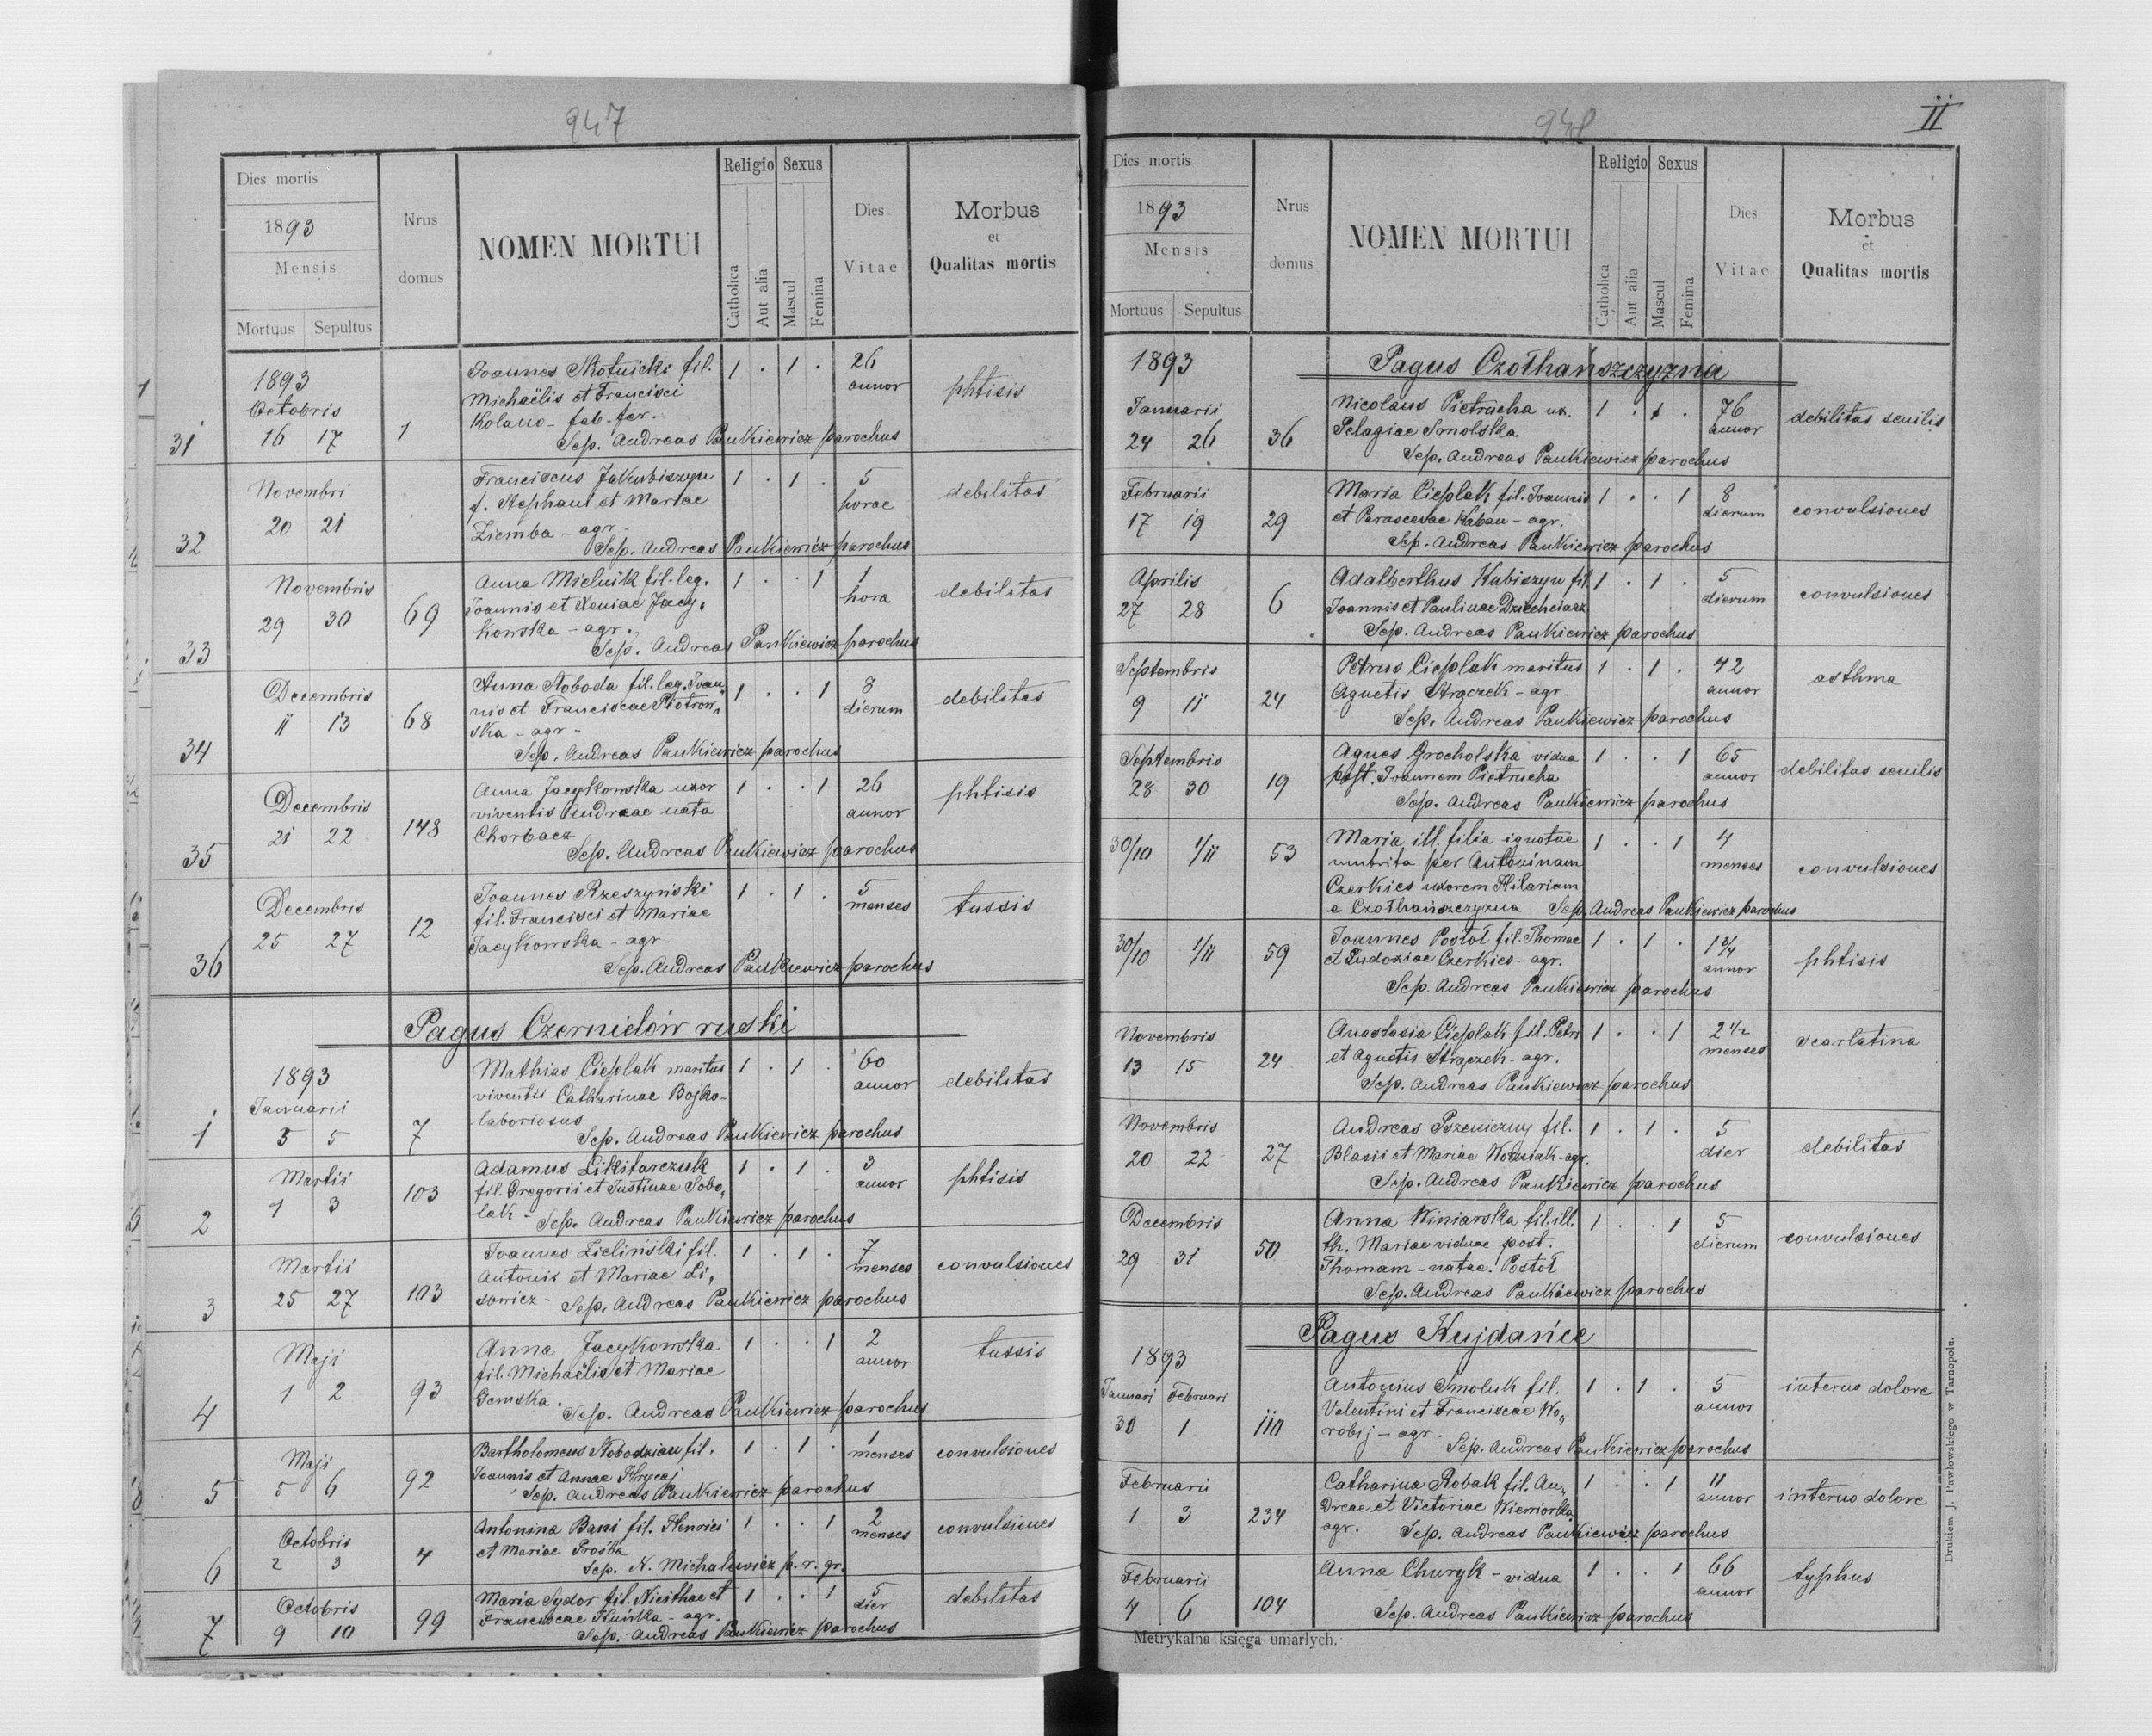 947
Dies mortis
1893
Mensis
Mortuus Sepultus
Nrus domus
NOMEN MORTUI
Religio Sexus
Catholica Aut alia Mascul Femina
Dies Vitae
Morbus et Qualitas mortis
1893 Octobris
31 16 17 1 Joannes Skotnicki fil. 1 . 1 . 26 annor phtisis
Michaëlis et Francisci
Kolano - fab. fer.
Sep. Andreas Pankiewicz parochus
Novembri
32 20 21 Franciscus Jakubiszyn 1 . 1 . 5 horae debilitas
f. Stephani et Mariae
Ziemba - agr -
Sep. Andreas Pankiewicz parochus
Novembris
33 29 30 69 Anna Mielnik fil. leg. 1 . . 1 1 hora debilitas
Joannis et Xeniae Jacy„
kowska - agr.
Sep. Andreas Pankiewicz parochus
Decembris
34 11 13 68 Anna Sloboda fil. leg. Joan„ 1 . . 1 8 dierum debilitas
nis et Franciscae Piotrow„
ska - agr -
Sep. Andreas Pankiewicz parochus
Decembris
35 21 22 148 Anna Jacykowska uxor 1 . . 1 26 annor phtisis
viventis Andreae nata
Chorbacz
Sep. Andreas Pankiewicz parochus
Decembris
36 25 27 12 Joannes Rzeszyński 1 . 1 . 5 menses tussis
fil. Francisci et Mariae
Jacykowska - agr -
Sep. Andreas Pankiewicz parochus
Pagus Czernielów ruski
1893 Januarii
1 3 5 7 Mathias Cieplak maritus 1 . 1 . 60 annor debilitas
viventis Catharinae Bojko -
laboriosus
Sep. Andreas Pankiewicz parochus
Martii
2 1 3 103 Adamus Likitarczuk 1 . 1 . 3 annor phtisis
fil. Gregorii et Justinae Sobo„
lak - Sep. Andreas Pankiewicz parochus
Martii
3 25 27 103 Joannes Zieliński fil. 1 . 1 . 7 menses convulsiones
Antonii et Mariae Li„
sowicz - Sep. Andreas Pankiewicz parochus
Maji
4 1 2 93 Anna Jacykowska 1 . . 1 2 annor tussis
fil. Michaëlis et Mariae
Sep. Andreas Pankiewicz parochus
Maji
5 5 6 92 Bartholomeus Slobodzian fil. 1 . 1 . 1 menses convulsiones
Joannis et Annae Hrycaj
Sep. Andreas Pankiewicz parochus
Octobris
6 2 3 4 Antonina Bani fil. Henrici 1 . . 1 2 menses convulsiones
et Mariae Prośba
Sep. N. Michalewicz p. r. gr.
Octobris
7 9 10 99 Maria Sydor fil. Nicithae et 1 . . 1 5 dier debilitas
Franciscae - agr.
Sep. Andreas Pankiewicz parochus
948
II
Dies mortis
1893
Mensis
Mortuus Sepultus
Nrus domus
NOMEN MORTUI
Religio Sexus
Catholica Aut alia Mascul Femina
Dies Vitae
Morbus et Qualitas mortis
1893 Pagus Czołhańszczyzna
Januarii
24 26 36 Nicolaus Pietrucha ux. 1 . 1 . 76 annor debilitas senilis
Pelagiae Smolska
Sep. Andreas Pankiewicz parochus
Februarii
17 19 29 Maria Cieplak fil. Joannis 1 . . 1 8 dierum convulsiones
et Parascevae Kaban - agr.
Sep. Andreas Pankiewicz parochus
Aprilis
27 28 6 Adalberthus Kubiszyn fil. 1 . 1 . 5 dierum convulsiones
Joannis et Paulinae Dziechciarz
Sep. Andreas Pankiewicz parochus
Septembris
9 11 24 Petrus Cieplak maritus 1 . 1 . 42 annor asthma
Agnetis Strączek - agr -
Sep. Andreas Pankiewicz parochus
Septembris
28 30 19 Agnes Grocholska vidua 1 . . 1 65 annor debilitas senilis
post. Joannem Pietrucha
Sep. Andreas Pankiewicz parochus
30/10 1/11 53 Maria ill. filia ignotae 1 . . 1 4 menses convulsiones
nutrita per Antoninam
Czerkies uxorem Hilariem
e Czołhańszczyzna Sep. Andreas Pankiewicz parochus
30/10 1/11 59 Joannes Postoł fil. Thomae 1 . 1 . 1 3/4 annor phtisis
et Eudoxiae Czerkies - agr.
Sep. Andreas Pankiewicz parochus
Novembris
13 15 24 Anastasia Cieplak fil. Petri 1 . . 1 2 1/2 menses scarlatina
et Agnetis Strączek - agr.
Sep. Andreas Pankiewicz parochus
Novembris
20 22 27 Andreas Pszeniczny fil. 1 . 1 . 5 dier debilitas
Blasii et Mariae Woźniak - agr.
Sep. Andreas Pankiewicz parochus
Decembris
29 31 50 Anna Winiarska fil. ill. 1 . . 1 5 dierum convulsiones
th. Mariae viduae post.
Thomam - natae. Postoł
Sep. Andreas Pankiewicz parochus
Pagus Kujdańce
1893
Januari Februari
30 1 110 Antonius Smoluk fil. 1 . 1 . 5 annor interno dolore
Valentini et Franciscae Wo„
robij - agr.
Sep. Andreas Pankiewicz parochus
Februarii
1 3 234 Catharina Robak fil. An„ 1 . . 1 11 annor interno dolore
dreae et Victoriae Wiewiorka
agr. Sep. Andreas Pankiewicz parochus
Februarii
4 6 104 Anna Churyk - vidua 1 . . 1 66 annor typhus
Sep. Andreas Pankiewicz parochus
Metrykalna księga umarłych.
Drukiem J. Pawłowskiego w Tarnopolu.